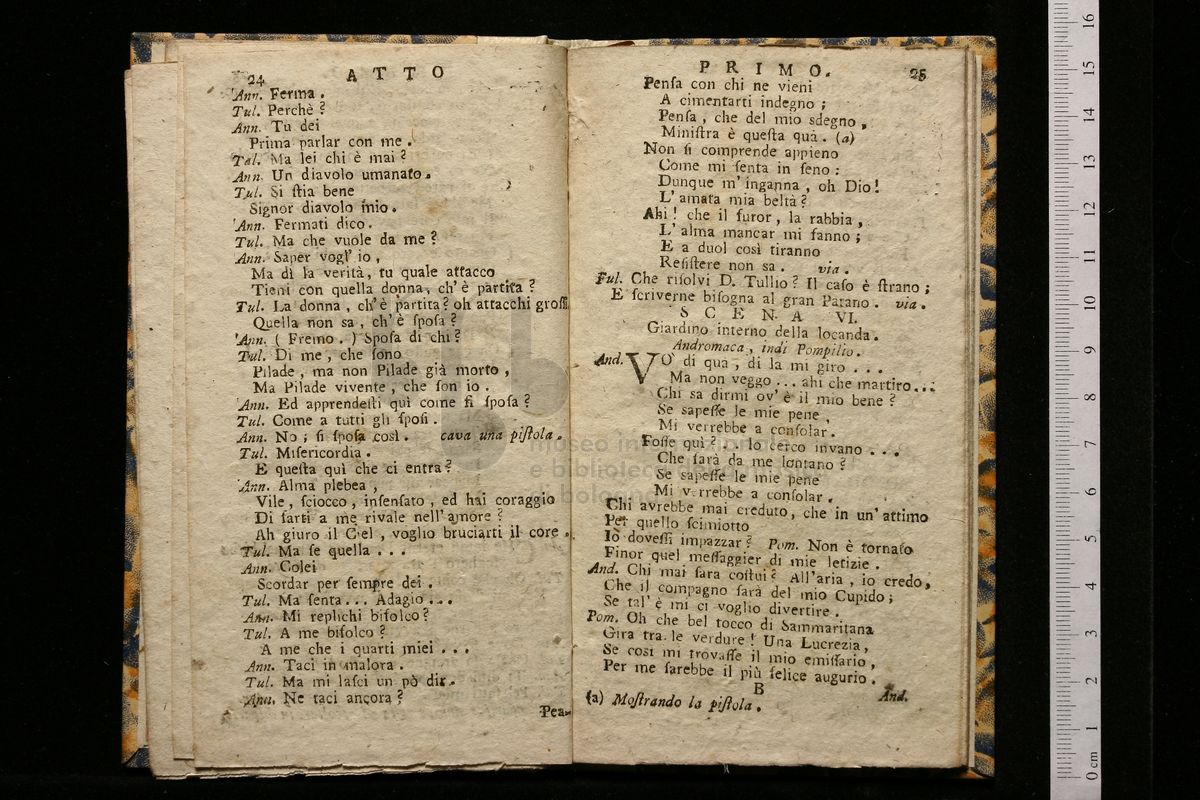 24 ATTO
Ann. Ferma.
Tul. Perchè?
Ann. Tu dei
Prima parlar con me.
Tul. Ma lei chi è mai?
Ann. Un diavolo umanato.
Tul. Si ſtia bene
Signor diavolo mio.
Ann. Fermati dico.
Tul. Ma che vuole da me?
Ann. Saper vogl' io,
Ma dì la verità, tu quale attacco
Tieni con quella donna, ch' è partita?
Tul. La donna, ch' è partita? oh attacchi groſſi
Quella non sa, ch' è ſpoſa?
Ann. (Fremo.) Spoſa di chi?
Tul. Di me, che ſono
Pilade, ma non Pilade già morto,
Ma Pilade vivente, che ſon io.
Ann. Ed apprendeſti quì come ſi ſpoſa?
Tul. Come a tutti gli ſpoſi.
Ann. No; ſi ſpoſa così. cava una piſtola.
Tul. Miſericordia.
E queſta quì che ci entra?
Ann. Alma plebea,
Vile, ſciocco, inſenſato, ed hai coraggio
Di farti a me rivale nell' amore?
Ah giuro il Ciel, voglio bruciarti il core.
Tul. Ma ſe quella ...
Ann. Colei
Scordar per ſempre dei.
Tul. Ma ſenta... Adagio...
Ann. Mi replichi bifolco?
Tul. A me bifolco?
A me che i quarti miei ...
Ann. Taci in malora.
Tul. Ma mi laſci un pò dir.
Ann. Ne taci ançora?
Pea-
PRIMO. 25
Penſa con chi ne vieni
A cimentarti indegno;
Penſa, che del mio sdegno,
Miniſtra è queſta quà. (a)
Non ſi comprende appieno
Come mi ſenta in ſeno:
Dunque m' inganna, oh Dio!
L' amata mia beltà?
Ahi! che il furor, la rabbia,
L' alma mancar mi fanno;
E a duol così tiranno
Reſiſtere non sa. via.
Ful. Che riſolvi D. Tullio? Il caſo è ſtrano;
E ſcriverne biſogna al gran Patano. via.
SCENA VI.
Giardino interno della locanda.
Andromaca, indi Pompilio.
And. VO' di quà, di la mi giro ...
Ma non veggo ... ahi che martiro...
Chi sa dirmi ov' è il mio bene?
Se sapeſſe le mie pene,
Mi verrebbe a conſolar.
Foſſe quì? ... lo cerco invano ...
Che farà da me lontano?
Se sapeſſe le mie pene
Mi verrebbe a conſolar.
Chi avrebbe mai creduto, che in un' attimo
Per quello ſcimiotto
Io doveſſi impazzar? Pom. Non è tornato
Finor quel meſſaggier di mie letizie.
And. Chi mai ſara coſtui? All'aria, io credo,
Che il compagno ſarà del mio Cupido;
Se tal' è mi ci voglio divertire.
Pom. Oh che bel tocco di Sammaritana
Gira tra le verdure! Una Lucrezia,
Se così mi trovaſſe il mio emiſſario,
Per me ſarebbe il più felice augurio.
B
And.
(a) Moſtrando la piſtola.